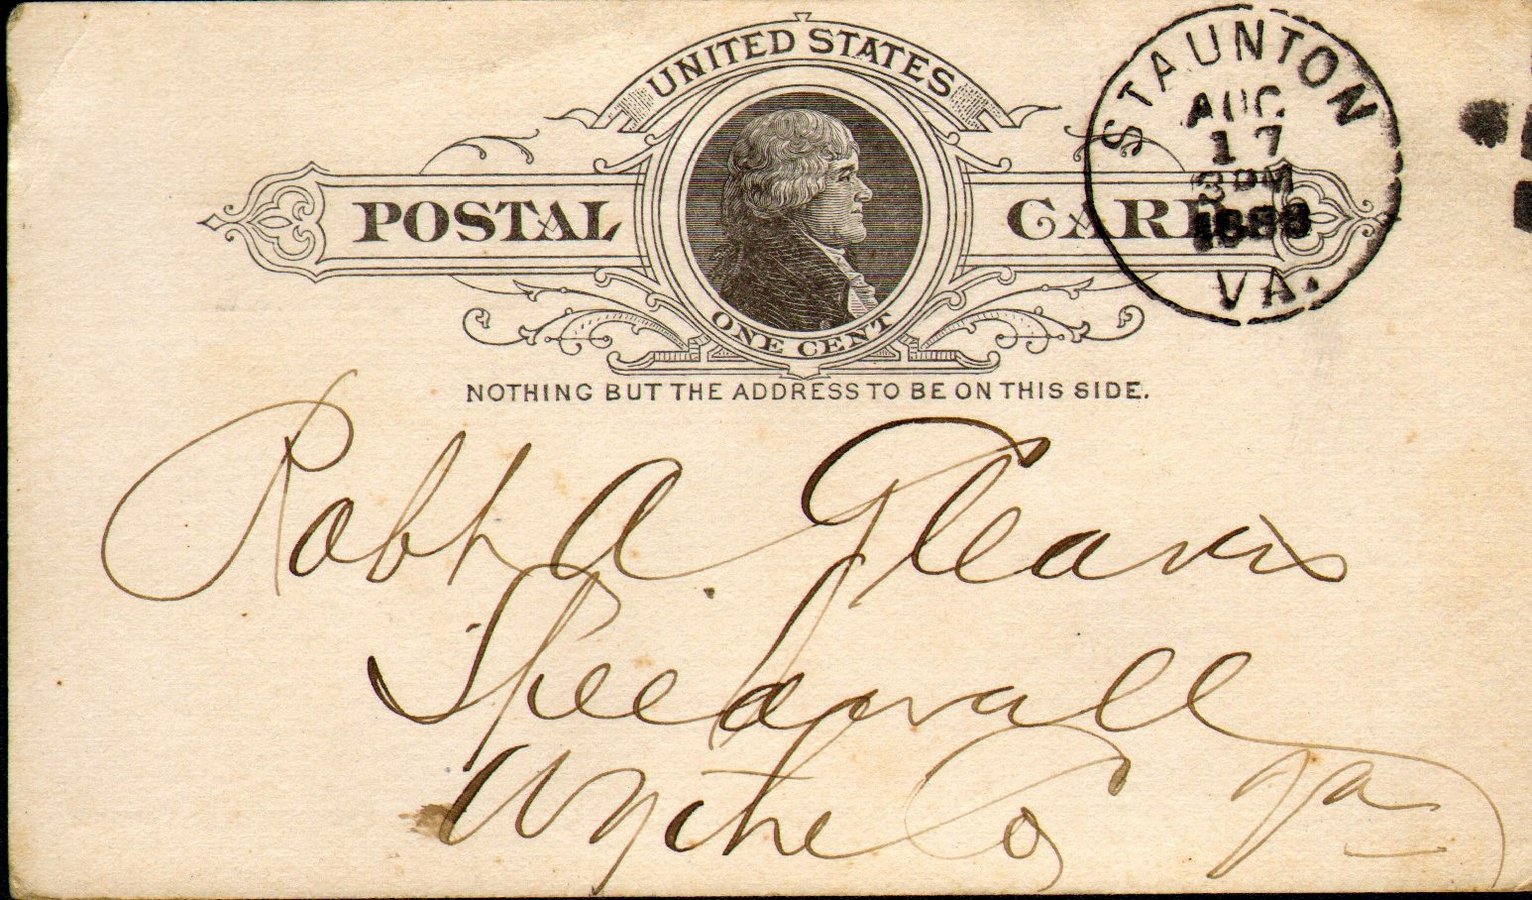 UNITED STATES
POSTAL CARD
ONE CENT
NOTHING BUT THE ADDRESS TO BE ON THIS SIDE.
STAUNTON
AUG
17
3 PM
1888
VA.
Robt A. Gleaves
Speedwell
Wythe Co Va